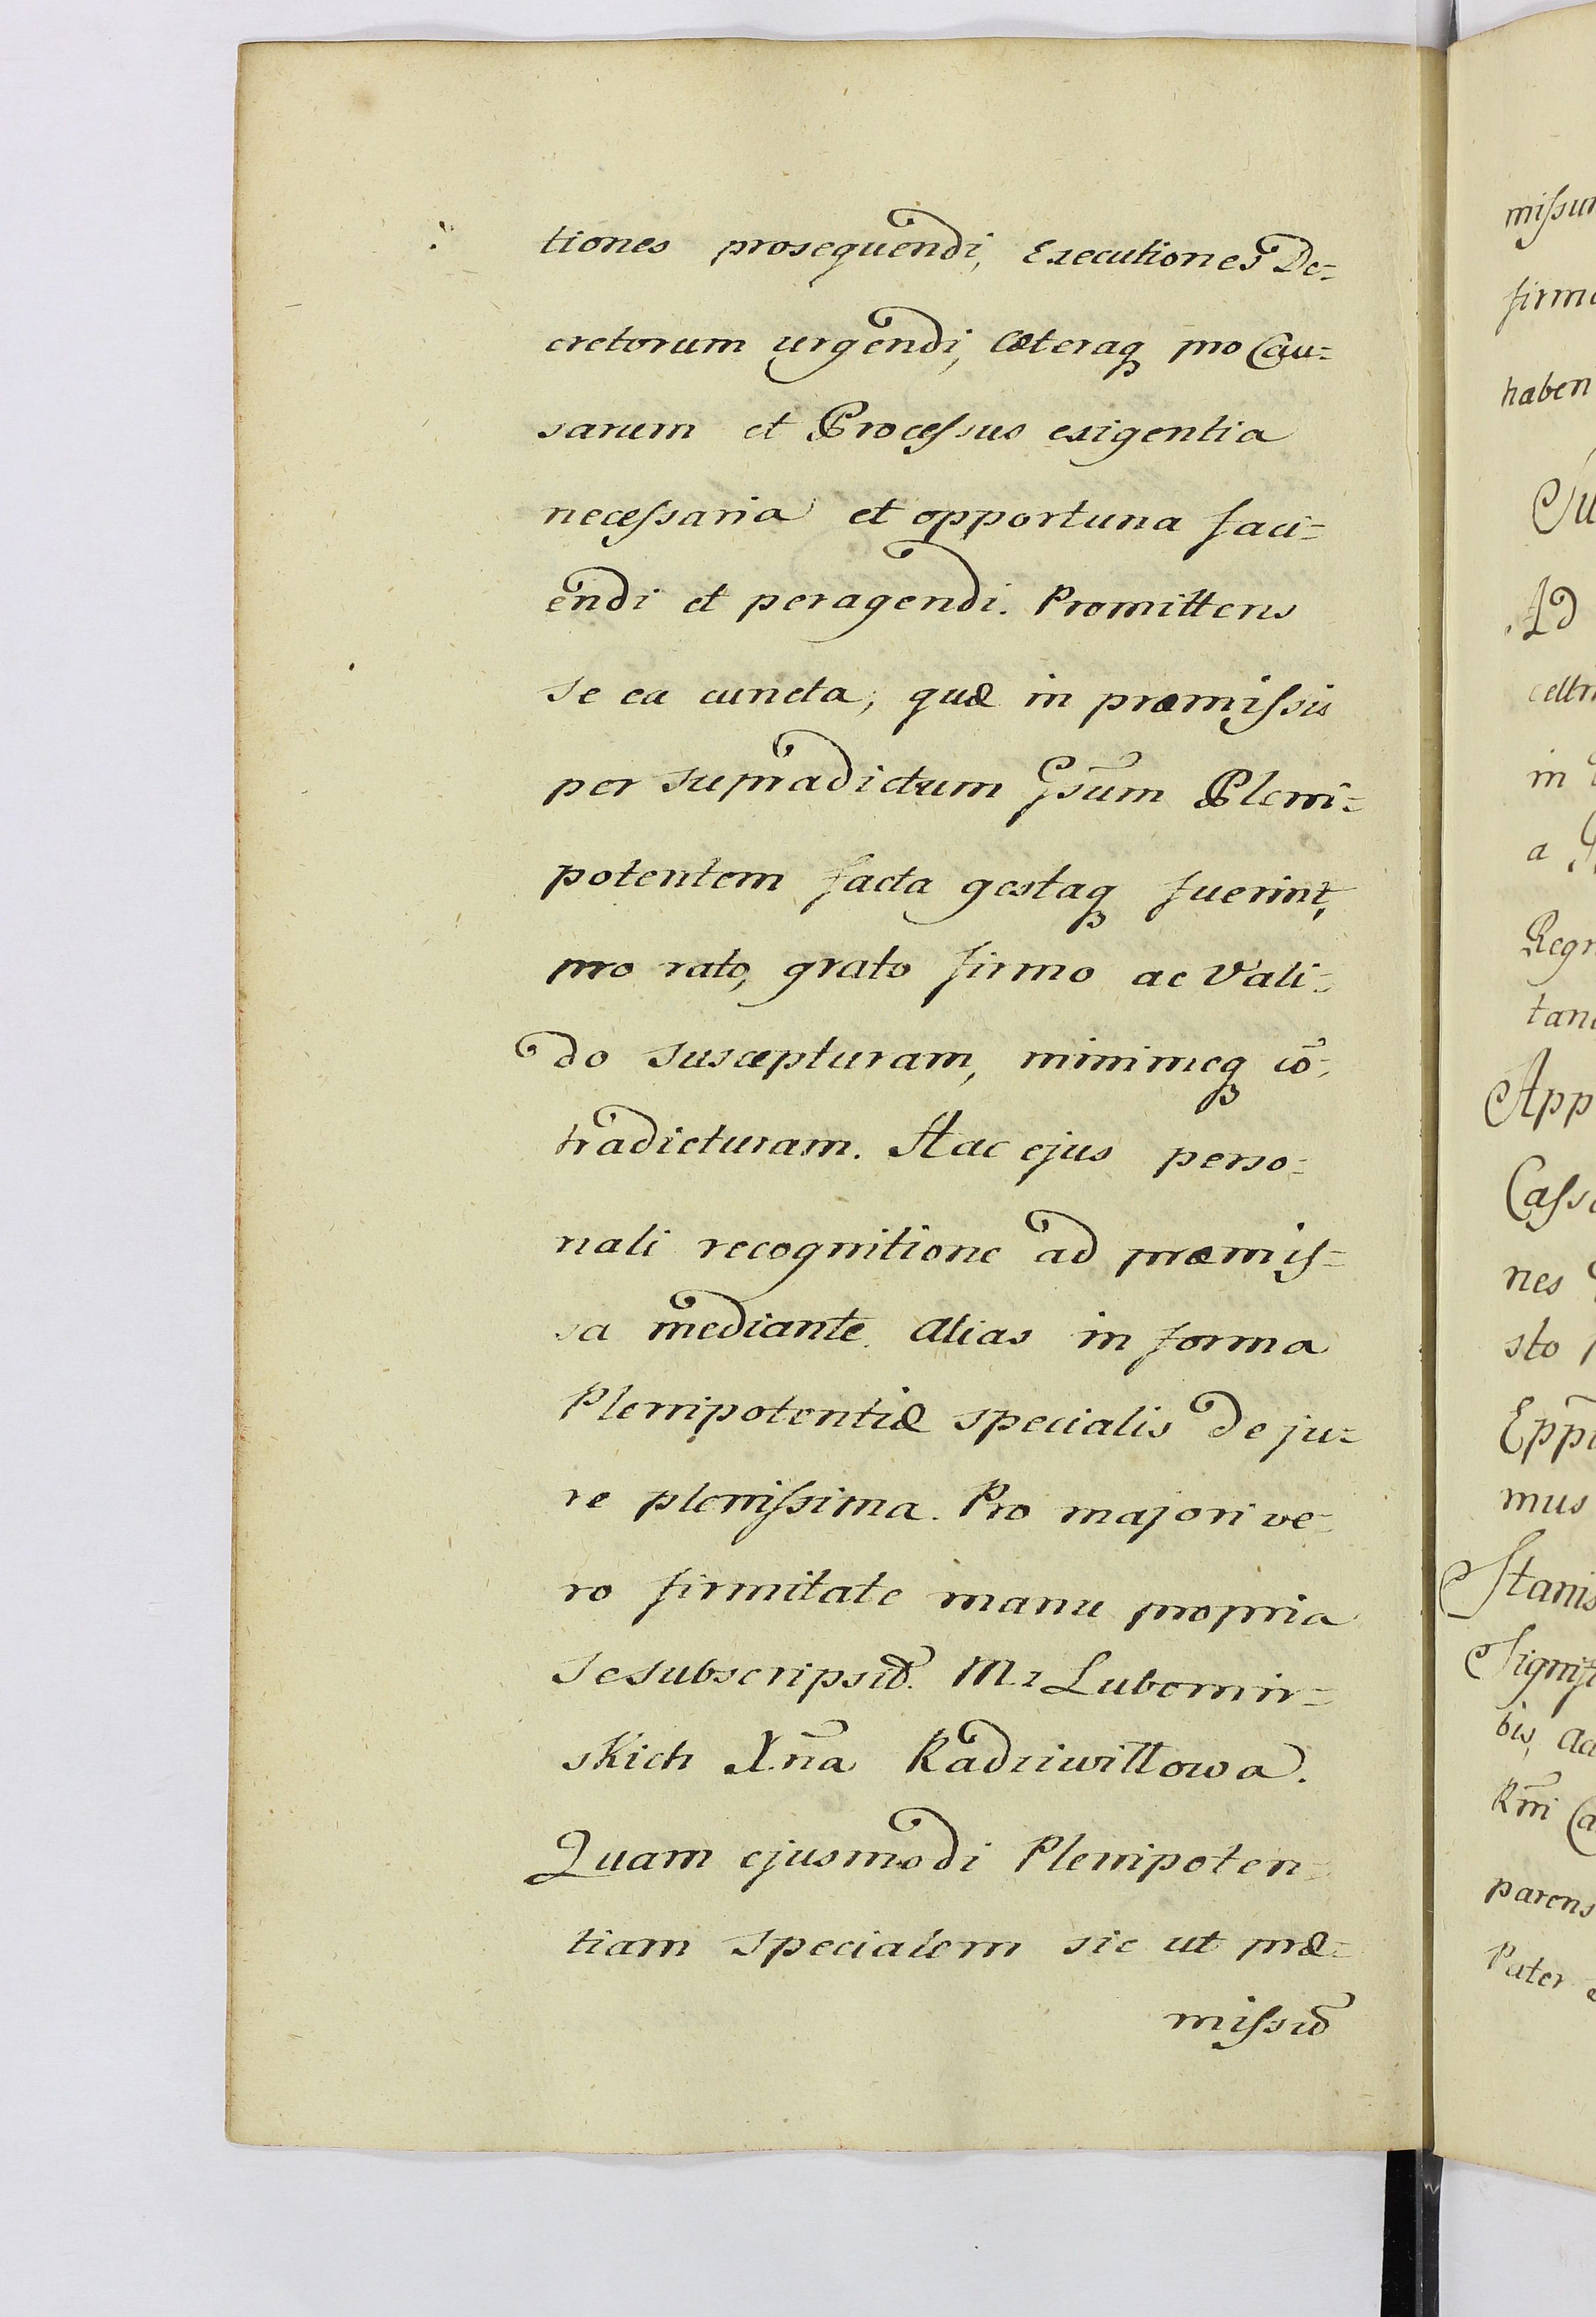 tiones prosequendi, Executiones De=
cretorum urgendi, Cæteraq pro Cau=
sarum et Processus exigentia
necessaria et opportuna faci=
endi et peragendi. Promittens
se ea cuncta, quæ in præmissis
per supradictum Gsūm Pleni=
potentem facta gestaq fuerint,
pro rato, grato firmo ac Vali=
do suscepturam, minimeq cō=
tradicturam. Hac ejus perso=
nali recognitione ad præmis=
sa mediante. Alias in forma
Plenipotentiæ specialis de ju=
re plenissima. Pro majori ve=
ro firmitate manu propria
se subscripsit. M. z Lubomir=
skich X.ña Radziwiłłowa.
Quam ejusmodi Plenipoten=
tiam specialem sic ut præ=
missũ
missu
firm
haben
Ad
in
a
Regn
App
Cass
nes
sto
mus
Stanis
bis, ad
parens
Pater